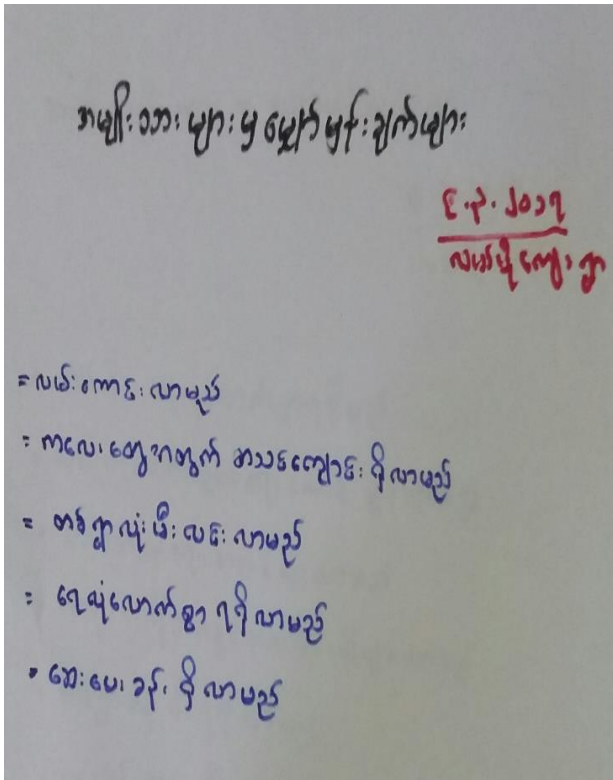 အမျိုးသားများမှ မျှော်မှန်းချက်များ
၆.၃.၂၀၁၇
လယ်ပိုကျေးရွာ
= လမ်းကောင်းလာမည်
= ကလေးတွေအတွက် စာသင်ကျောင်း ရှိလာမည်
= တစ်ရွာလုံးမီးလင်းလာမည်
= ရေလုံလောက်စွာ ရရှိလာမည်
= ဆေးပေးခန်း ရှိလာမည်